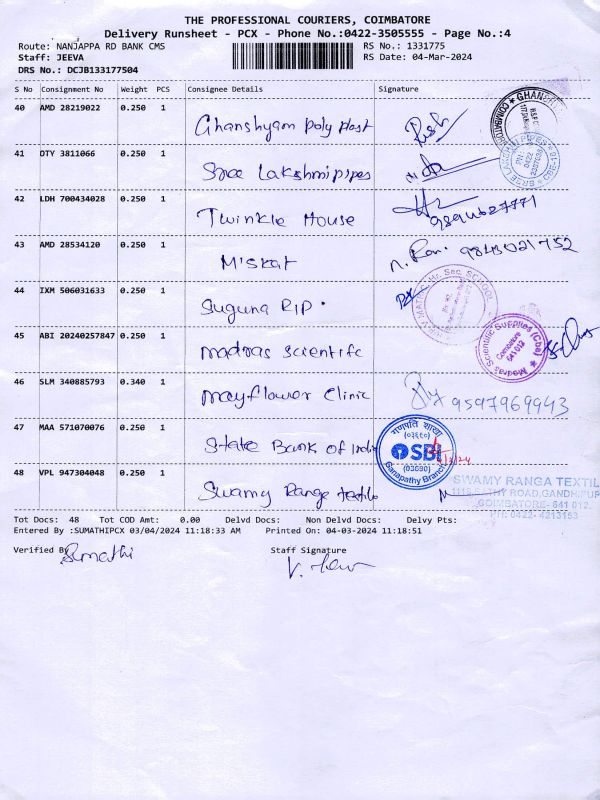 THE PROFESSIONAL COURIERS, COIMBATORE
Delivery Runsheet - PCX - Phone No.:0422-3505555 - Page No.:4
Route: NANJAPPA RD BANK CMS RS No.: 1331775
Staff: JEEVA RS Date: 04-Mar-2024
DRS No.: DCJB133177504
S No Consignment No Weight PCS Consignee Details Signature
40 AMD 28219022 0.250 1 Ghanshyam poly plast
41 DTY 3811066 0.250 1 Sree Lakshmi pipes
42 LDH 700434028 0.250 1 Twinkle House
43 AMD 28534120 0.250 1 Miskat 9843021752
44 IXM 506031633 0.250 1 Suguna RIP
MATRIC. Hr. Sec. SCHOOL
45 ABI 20240257847 0.250 1 madras scientific
Madras Scientific Supplies (Cbe)
Coimbatore
641 012
46 SLM 340885793 0.340 1 mayflower Clinic 9597969943
47 MAA 571070076 0.250 1 State Bank of India
गणपति शाखा
(०३६९०)
SBI
(03690)
Ganapathy Branch
48 VPL 947304048 0.250 1 Swamy Ranga textile
SWAMY RANGA TEXTIL
ROAD, GANDHIPUR
COIMBATORE- 641 012.
PH: 0422- 4213153
Tot Docs: 48 Tot COD Amt: 0.00 Delvd Docs: Non Delvd Docs: Delvy Pts:
Entered By :SUMATHIPCX 03/04/2024 11:18:33 AM Printed On: 04-03-2024 11:18:51
Verified By Sumathi Staff Signature